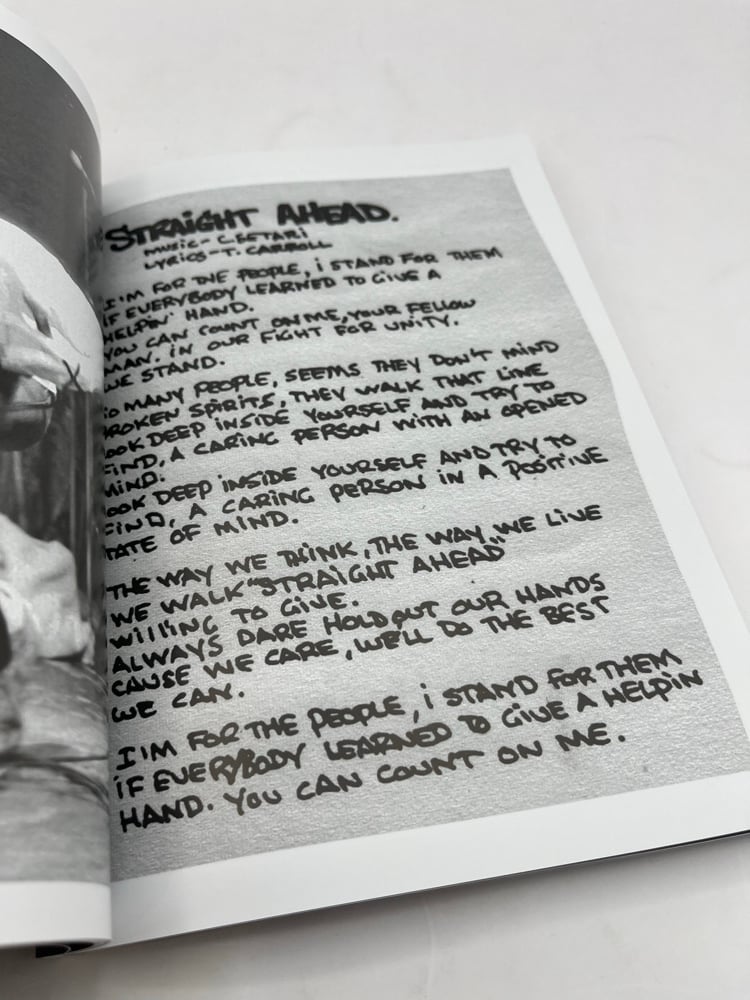 STRAIGHT AHEAD.
MUSIC - C. SETARI
LYRICS - T. CARROLL
I'M FOR THE PEOPLE, i STAND FOR THEM
IF EVERYBODY LEARNED TO GIVE A
HELPIN' HAND.
YOU CAN COUNT ON ME, YOUR FELLOW
MAN. IN OUR FIGHT FOR UNITY.
WE STAND.
SO MANY PEOPLE, SEEMS THEY DON'T MIND
BROKEN SPIRITS, THEY WALK THAT LINE
LOOK DEEP INSIDE YOURSELF AND TRY TO
FIND, A CARING PERSON WITH AN OPENED
MIND.
LOOK DEEP INSIDE YOURSELF AND TRY TO
FIND, A CARING PERSON IN A POSITIVE
STATE OF MIND.
THE WAY WE THINK, THE WAY WE LIVE
WE WALK "STRAIGHT AHEAD"
WILLING TO GIVE.
ALWAYS DARE HOLD OUT OUR HANDS
CAUSE WE CARE, WE'LL DO THE BEST
WE CAN.
I'M FOR THE PEOPLE, i STAND FOR THEM
IF EVERYBODY LEARNED TO GIVE A HELPIN
HAND. YOU CAN COUNT ON ME.